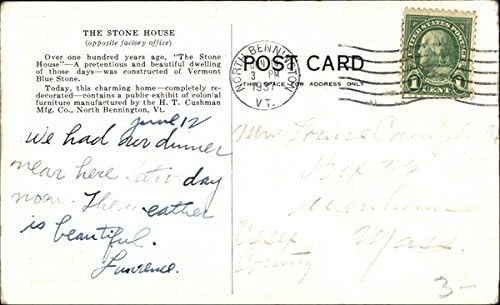 THE STONE HOUSE
(opposite factory office)
Over one hundred years ago, "The Stone
House"—A pretentious and beautiful dwelling
of those days—was constructed of Vermont
Blue Stone.
Today, this charming home—completely re-
decorated—contains a public exhibit of colonial
furniture manufactured by the H. T. Cushman
Mfg Co., North Bennington, Vt.
June 12
We had our dinner
near here
noon. The weather
is beautiful.
Lawrence.
POST CARD
THIS SPACE FOR ADDRESS ONLY
NORTH BENNINGTON
3 PM
VT.
UNITED STATES POSTAGE
1 CENT 1
Mrs. Louise Campbell
Box
Wenham
Essex Mass.
County
3-